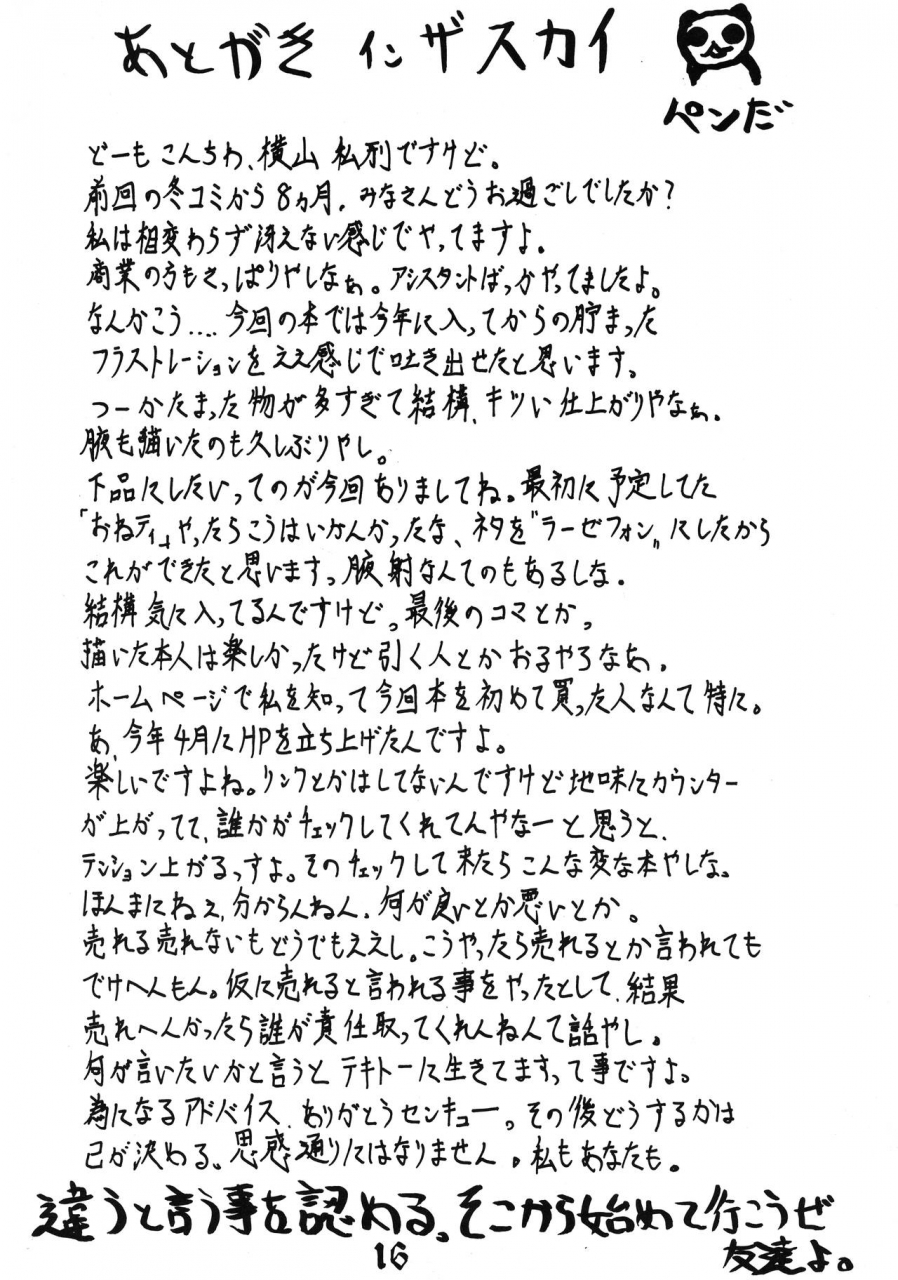 あとがき インザスカイ
ペンだ
どーもこんちわ、横山私刑ですけど。
前回の冬コミから8ヵ月、みなさんどうお過ごしでしたか?
私は相変わらず冴えない感じでやってますよ。
商業の方もさっぱりやしなぁ。アシスタントばっかやってましたよ。
なんかこう....今回の本では今年に入ってからの貯まった
フラストレーションをええ感じで吐き出せたと思います。
つーかたまった物が多すぎて結構、キツい仕上がりやなぁ。
腋も描いたのも久しぶりやし。
下品にしたいってのが今回ありましてね。最初に予定してた
「おねティ」やったらこうはいけんかったな、ネタを"ラーゼフォン"にしたから
これができたと思います。腋射なんてのもあるしな。
結構気に入ってるんですけど。最後のコマとか。
描いた本人は楽しかったけど引く人とかおるやろなあ。
ホームページで私を知って今回本を初めて買った人なんて特に。
あ、今年4月にHPを立ち上げたんですよ。
楽しいですよね。リンクとかはしてないんですけど地味にカウンター
が上がってて、誰かがチェックしてくれてんやなーと思うと、
テンション上がるっすよ。そのチェックして来たらこんな変な本やしな。
ほんまにねぇ、分からんねん、何が良いとか悪いとか。
売れる売れないもどうでもええし。こうやったら売れるとか言われても
でけへんもん。仮に売れると言われる事をやったとして、結果
売れへんかったら誰が責任取ってくれんねんて話やし。
何が言いたいかと言うとテキトーに生きてますって事ですよ。
為になるアドバイス、ありがとうセンキュー。その後どうするかは
己が決める。思惑通りにはなりません。私もあなたも。
違うと言う事を認める。そこから始めて行こうぜ
友達よ。
16